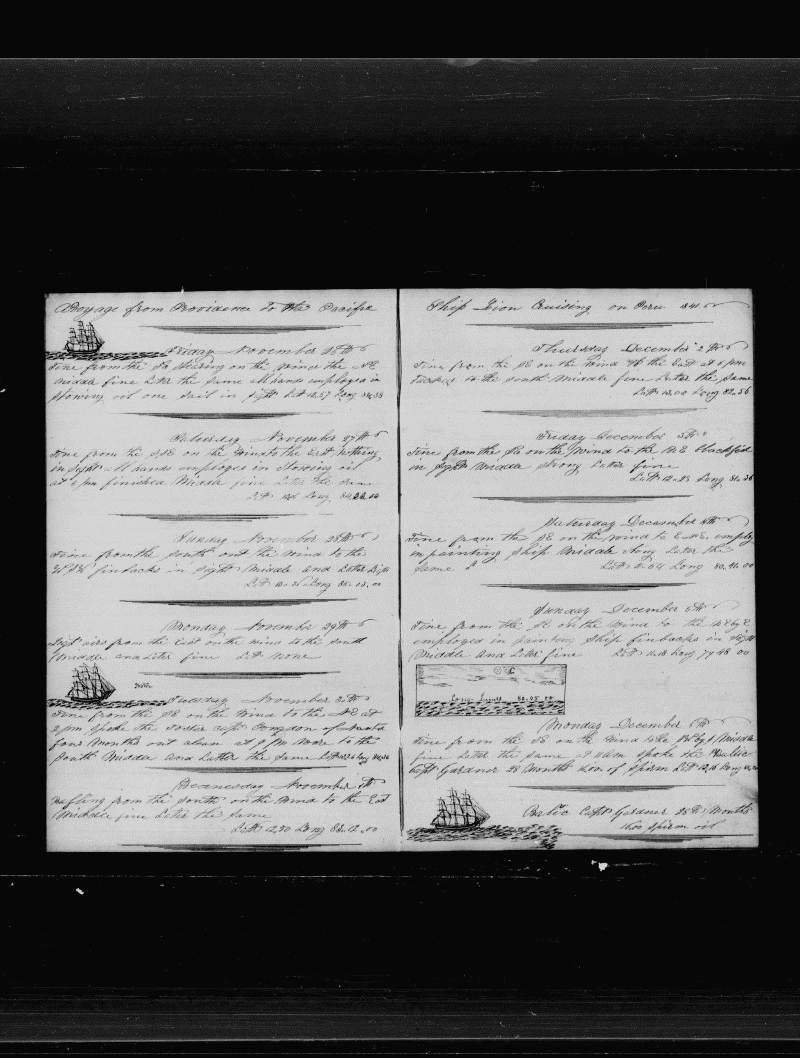 Voyage from Providence to the Pacific
Friday November 26th
Fine from the SE steering on the wind to the NE
Middle fine Later the same all hands employed in
Stowing oil one sail in sight Latt 12.57 Long 84.33
Saturday November 27th
Fine from the SSE on the wind to the East nothing
in sight all hands employed in Stowing oil
at 6 pm finished Middle fine Later the same
Latt Long 84.22.00
Sunday November 28th
Fine from the South on the wind to the
finbacks in sight Middle and Later Light
Latt Long
Monday November 29th
Light airs from the East on the wind to the South
Middle and Later fine Latt None
Tuesday November 30th
Fine from the SE on the wind to the NE at
2 pm Spoke the Foster Capt Congdon of
four Months out clean at 5 PM wore to the
South Middle and Latter the same Latt Long
Wednesday
Baffling from the South on the wind to the East
Middle fine Later the same
Latt 12.30 Long 83.12.00
Ship Lion Cruising on Peru 1841
Thursday December 2th
Fine from the SE on the wind to the East at 5 pm
tacked to the South Middle fine Later the same
Latt 13.00 Long 82.56
Friday December 3th
Fine from the SE on the wind to the NE blackfish
in Sight Middle strong Later fine
Latt 12.23 Long 81.36
Saturday December 4th
Fine from the SE on the wind to E.N.E. employ
in painting Ship Middle Later the
same Latt Long 80.41.00
Sunday December 5th
Fine from the SE on the wind to the NE by E
employed in painting Ship finbacks in Sight
Middle and Later fine Latt 11.18 Long 79.48.00
80.05.00
Monday December 6th
Fine from the SE on the wind to the Middle
fine Later the same at 11 am Spoke the Baltic
Capt Gardner 28 Months 1600 of Sperm Latt 12.16 Long
Baltic Capt Gardner 28th Months
1600 Sperm oil